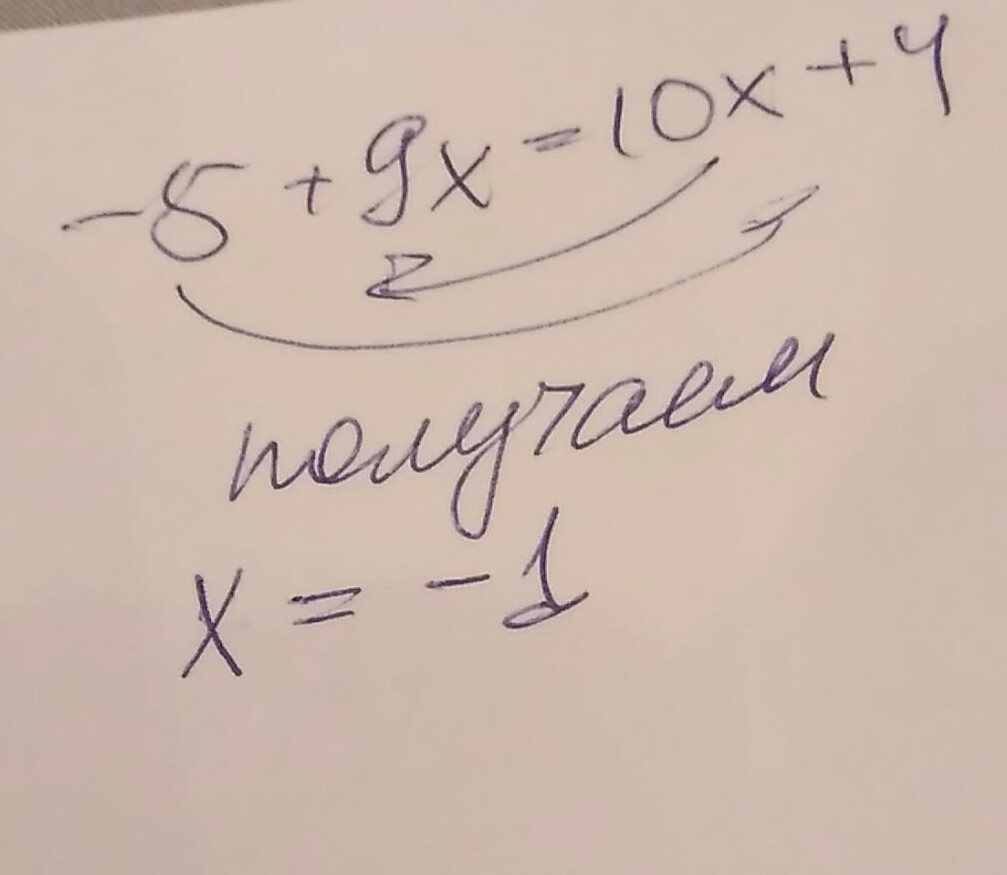 -5 + 9x = 10x + 4
получаем
x = -1